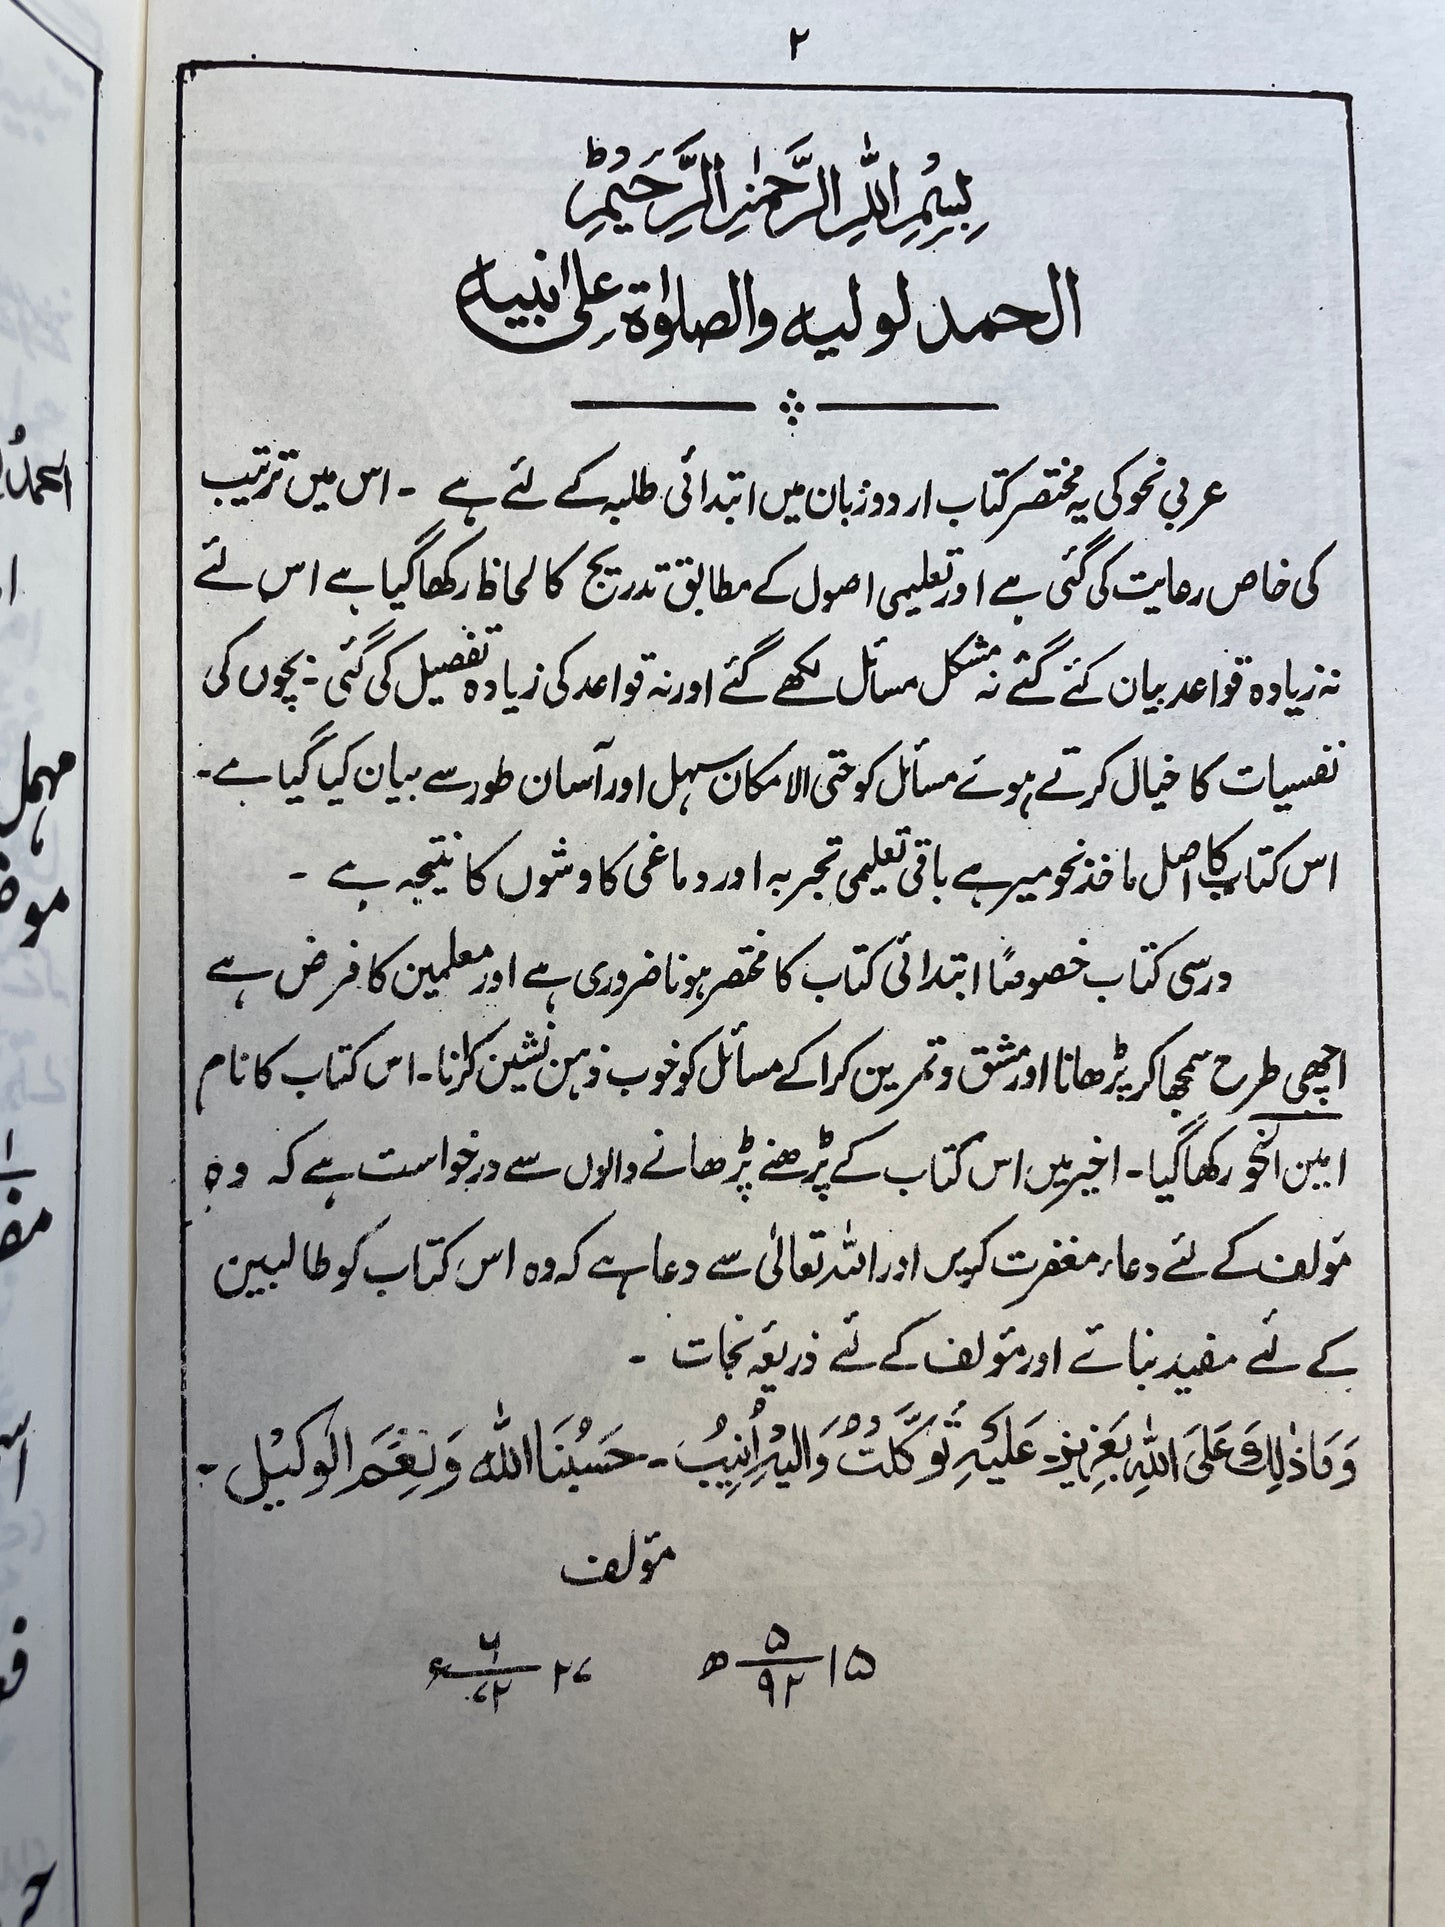 ۲
بِسْمِ اللّٰهِ الرَّحْمٰنِ الرَّحِیْمِ ط
الحمد لوليه والصلوٰة علىٰ نبيه
عربی نحو کی یہ مختصر کتاب اردو زبان میں ابتدائی طلبہ کے لئے ہے ۔ اس میں ترتیب
کی خاص رعایت کی گئی ہے اور تعلیمی اصول کے مطابق تدریج کا لحاظ رکھا گیا ہے اس لئے
نہ زیادہ قواعد بیان کئے گئے نہ مشکل مسائل لکھے گئے اور نہ قواعد کی زیادہ تفصیل کی گئی ۔ بچوں کی
نفسیات کا خیال کرتے ہوئے مسائل کو حتی الامکان سہل اور آسان طور سے بیان کیا گیا ہے ۔
اس کتاب کا اصل ماخذ نحو میر ہے باقی تعلیمی تجربہ اور دماغی کاوشوں کا نتیجہ ہے ۔
درسی کتاب خصوصًا ابتدائی کتاب کا مختصر ہونا ضروری ہے اور معلمین کا فرض ہے
اچھی طرح سمجھا کر پڑھانا اور مشق و تمرین کرا کے مسائل کو خوب ذہن نشین کرانا ۔ اس کتاب کا نام
امین النحو رکھا گیا ۔ اخیر میں اس کتاب کے پڑھنے پڑھانے والوں سے درخواست ہے کہ وہ
مؤلف کے لئے دعاء مغفرت کریں اور اللہ تعالیٰ سے دعا ہے کہ وہ اس کتاب کو طالبین
کے لئے مفید بنائے اور مؤلف کے لئے ذریعۂ نجات ۔
وَمَا ذٰلِكَ عَلَى اللّٰهِ بِعَزِيْزٍ ۔ عَلَيْهِ تَوَكَّلْتُ وَالَيْهِ اُنِيْبُ ۔ حَسْبُنَا اللّٰهُ وَنِعْمَ الْوَكِيْل ۔
مؤلف
۱۵ ۵/۹۲ ھ ۲۷ ۶/۷۲ ء